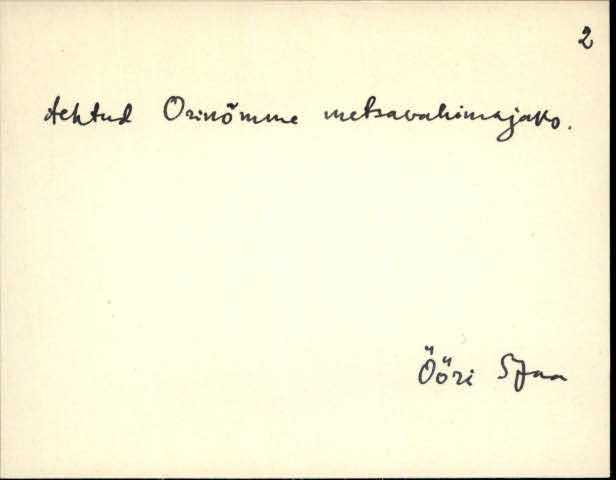 2
tehtud Orinõmme metsavahimajako.
Ööri SJaa